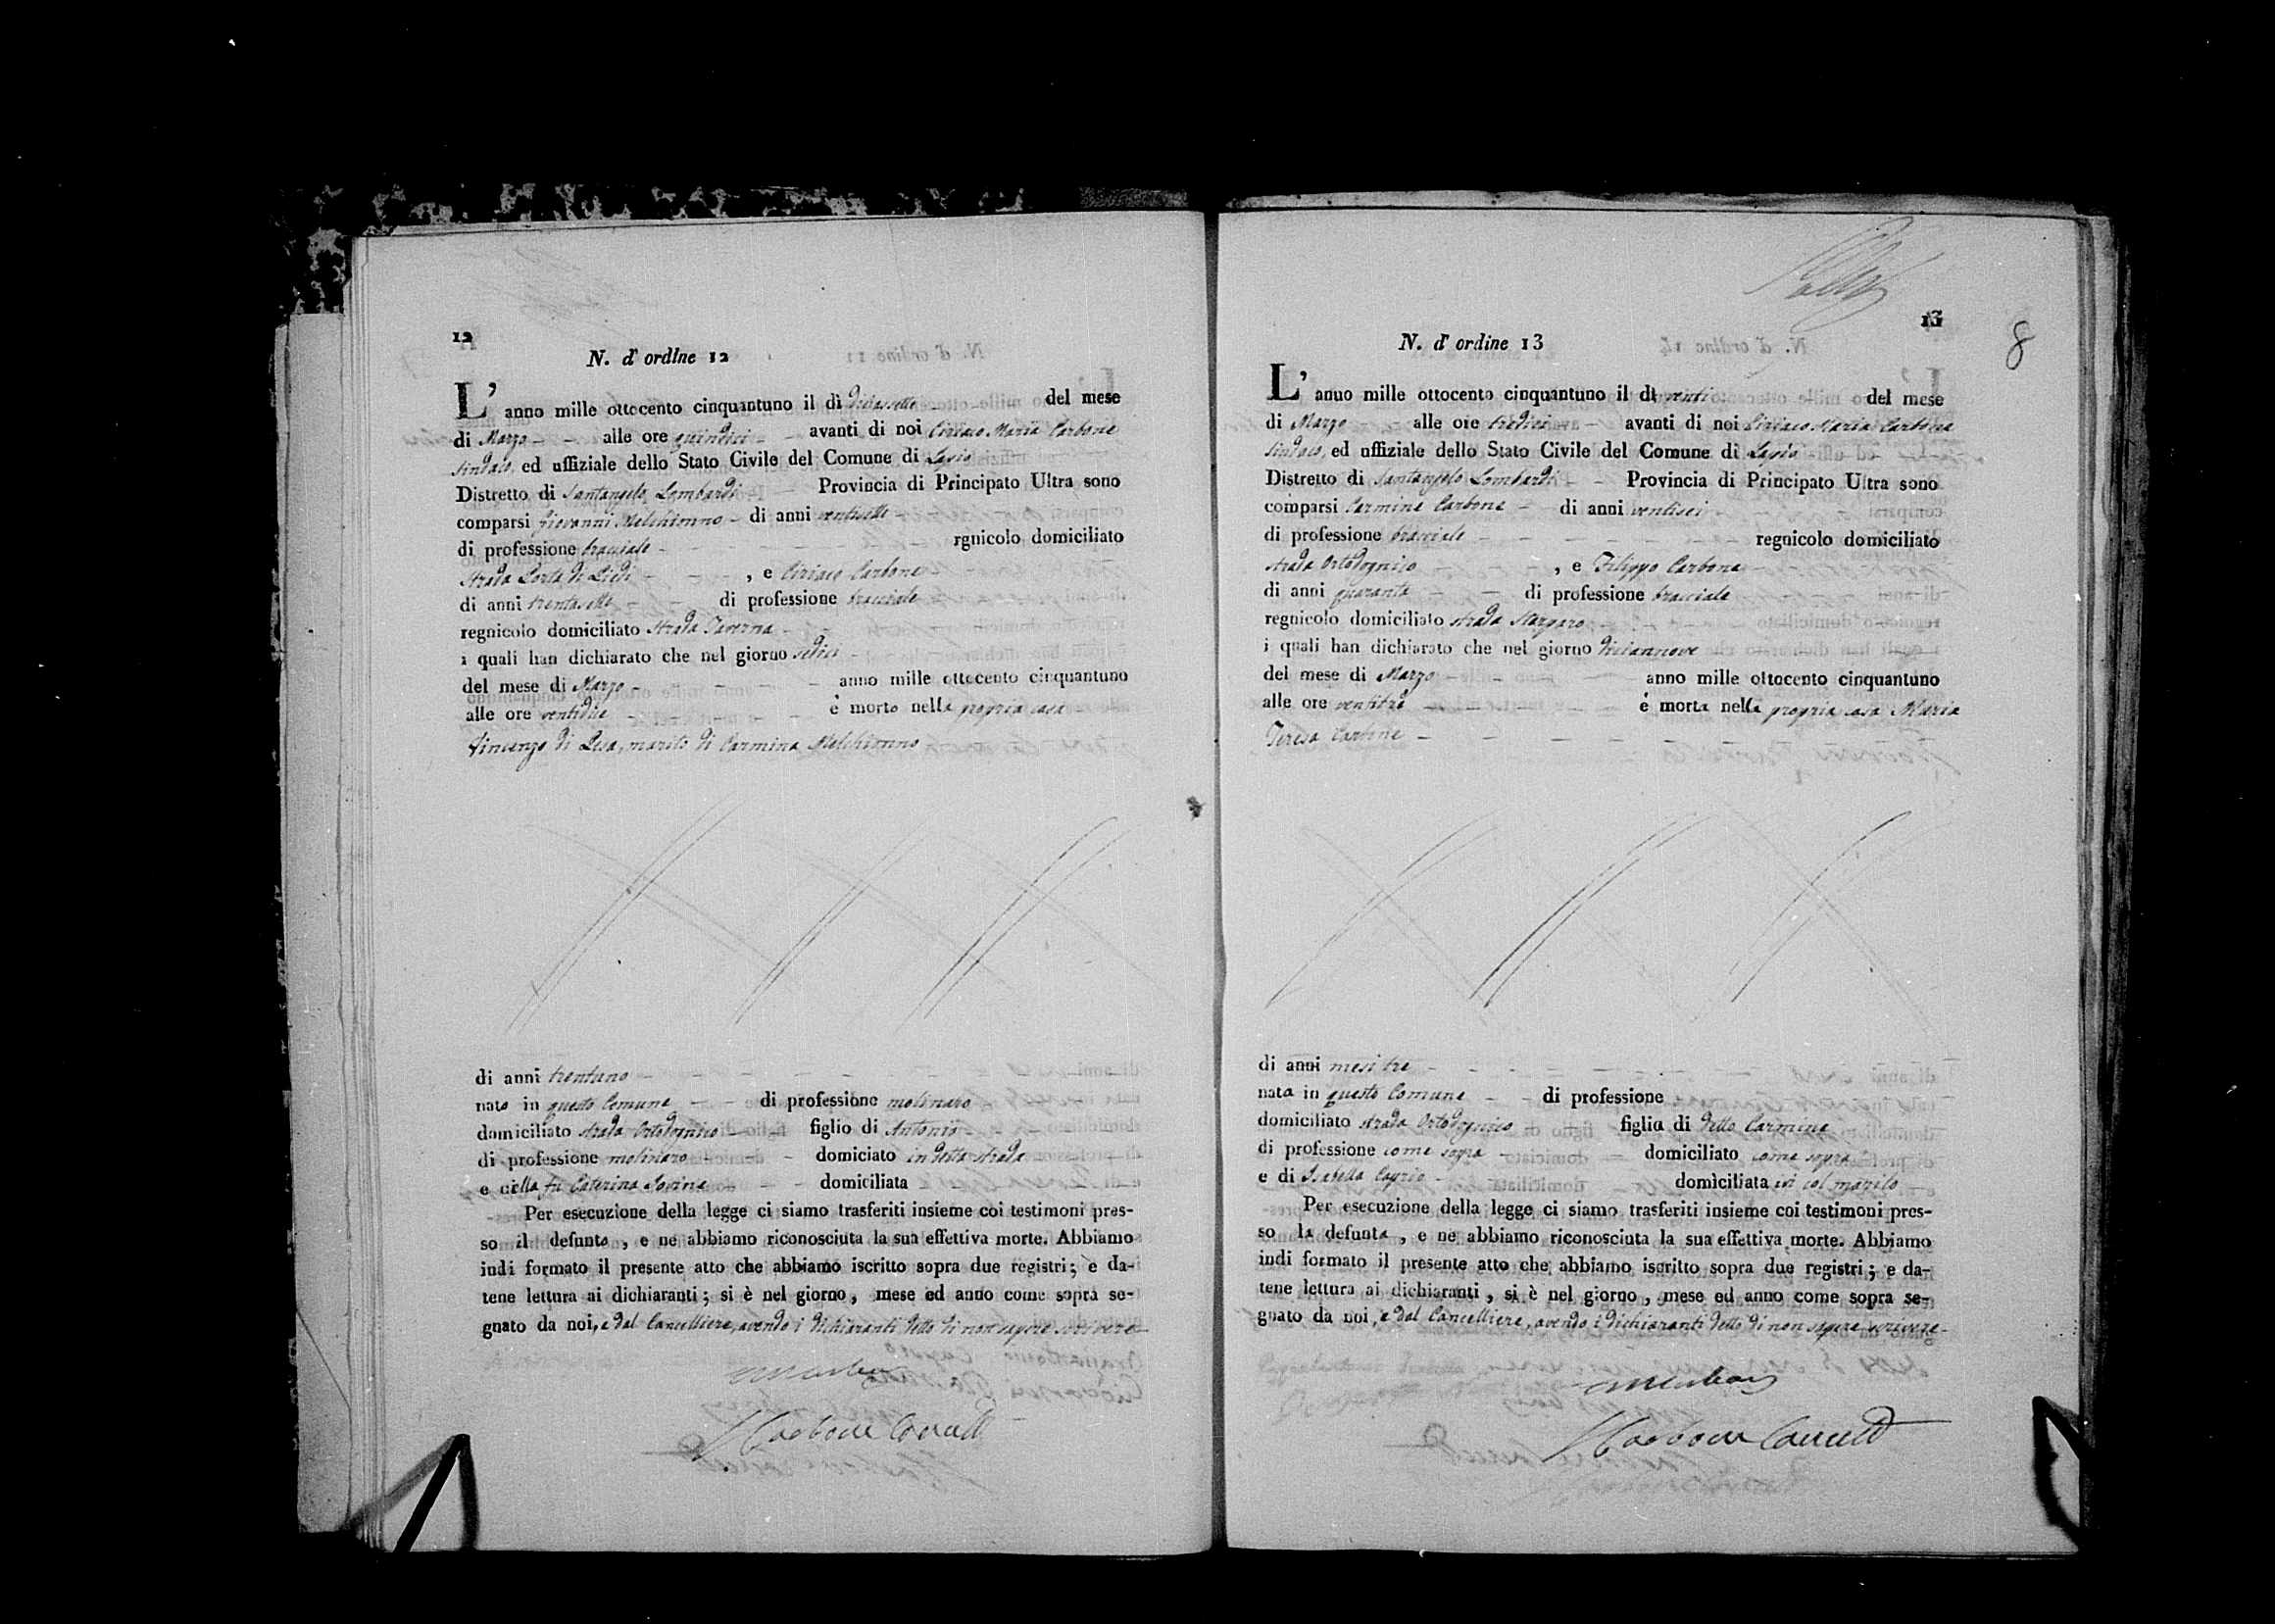 12
N. d' ordine 12
L' anno mille ottocento cinquantuno il dì diciassette del mese
di Marzo alle ore quindici avanti di noi Ciriaco Maria Carbone
Sindaco, ed uffiziale dello Stato Civile del Comune di
Distretto di Santangelo Lombardi Provincia di Principato Ultra sono
comparsi Giovanni Melchionno di anni ventisette
di professione bracciale rgnicolo domiciliato
strada Porta di Piedi , e Ciriaco Carbone
di anni trentasette di professione bracciale
regnicolo domiciliato strada Taverna
i quali han dichiarato che nel giorno sedici
del mese di Marzo anno mille ottocento cinquantuno
alle ore ventidue è morto nella propria casa
Vincenzo di Pesa, marito di Carmina Melchionno
di anni trentuno
nato in questo Comune di professione molinaro
damiciliato strada Ortodognico figlio di Antonio
di professione molinaro domiciato in detta strada
e della fu Caterina Iovine domiciliata
Per esecuzione della legge ci siamo trasferiti insieme coi testimoni pres-
so il defunto , e ne abbiamo riconosciuta la sua effettiva morte. Abbiamo
indi formato il presente atto che abbiamo iscritto sopra due registri; e da-
tene lettura ai dichiaranti; si è nel giorno, mese ed anno come sopra se-
gnato da noi, e dal Cancelliere, avendo i dichiaranti detto di non sapere scrivere
13
8
N. d' ordine 13
L' anuo mille ottocento cinquantuno il dì venti del mese
di Marzo alle ore tredici avanti di noi Ciriaco Maria Carbone
Sindaco, ed uffiziale dello Stato Civile del Comune di
Distretto di Santangelo Lombardi Provincia di Principato Ultra sono
comparsi Carmine Carbone di anni ventisei
di professione bracciale regnicolo domiciliato
strada Ortodognico , e Filippo Carbone
di anni quaranta di professione bracciale
regnicolo domiciliato strada
i quali han dichiarato che nel giorno diciannove
del mese di Marzo anno mille ottocento cinquantuno
alle ore ventitrè è morta nella propria casa Maria
Teresa Carbone
di anni mesi tre
nata in questo Comune di professione
domiciliato strada Ortodognico figlia di detto Carmine
di professione come sopra domiciliato come sopra
e di Isabella Caprio domiciliata ivi col marito
Per esecuzione della legge ci siamo trasferiti insieme coi testimoni pres-
so la defunta , e ne abbiamo riconosciuta la sua effettiva morte. Abbiamo
indi formato il presente atto che abbiamo iscritto sopra due registri; e da-
tene lettura ai dichiaranti , si è nel giorno , mese ed anno come sopra se-
gnato da noi, e dal Cancelliere, avendo i dichiaranti detto di non sapere scrivere